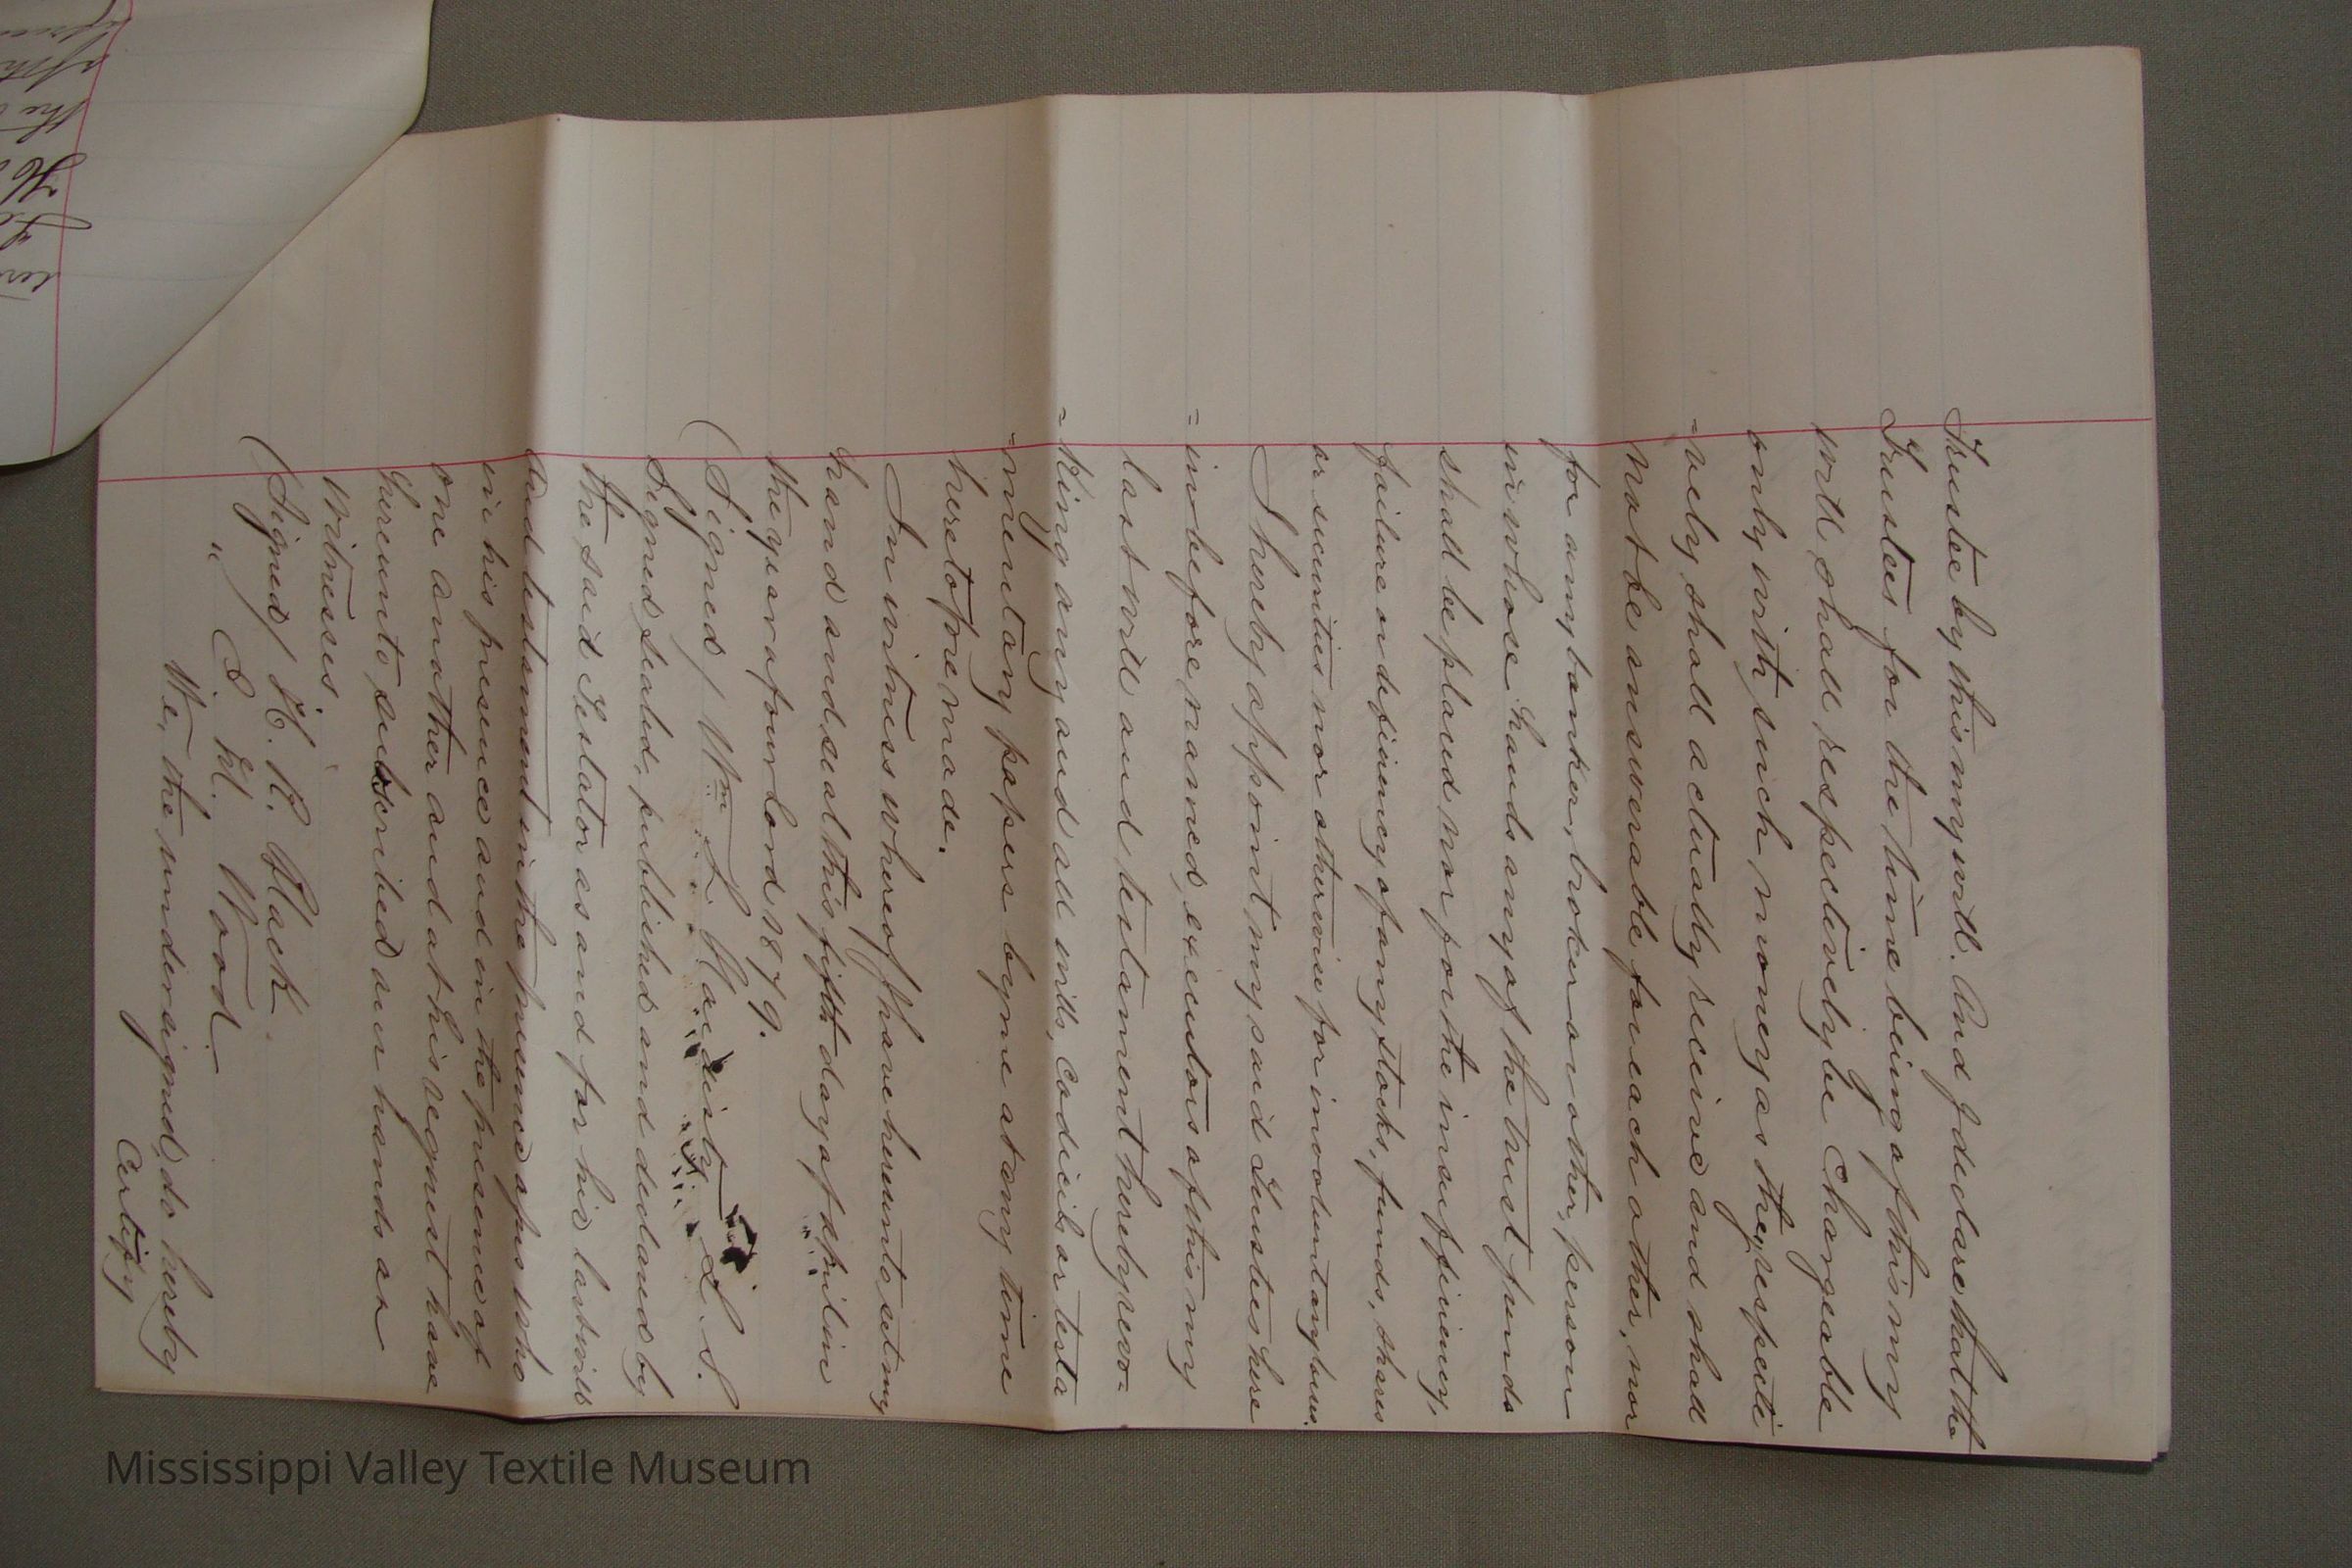 Trustee by this my will. And I declare that the
Trustees for the time being of this my
will, shall respectively be chargeable
only with such moneys as they respecti
=vely shall actually receive and shall
not be answerable for each other, nor
for any banker, broker or other person
in whose hands any of the trust funds
shall be placed nor for the insufficiency,
failure or deficiency of any stocks, funds, shares
or securities nor otherwise for involuntary loss.
I hereby appoint my said Trustees here
=inbefore named, executors of this my
last will and testament hereby revo=
=king any and all wills, codicils or testa
=mentary papers by me at any time
heretofore made.
In witness whereof I have hereunto set my
hand and seal this fifth day of April in
the year of our Lord 1879.
(Signed) Wm L. L.S.
Signed, sealed, published and declared by
the said Testator as and for his last will
and testament in the presence of us who
in his presence and in the presence of
one another and at his request have
hereunto subscribed our hands as
witnesses.
(Signed) H. R. Black
" S. H. Wood.
We, the undersigned, do hereby
Certify
Mississippi Valley Textile Museum